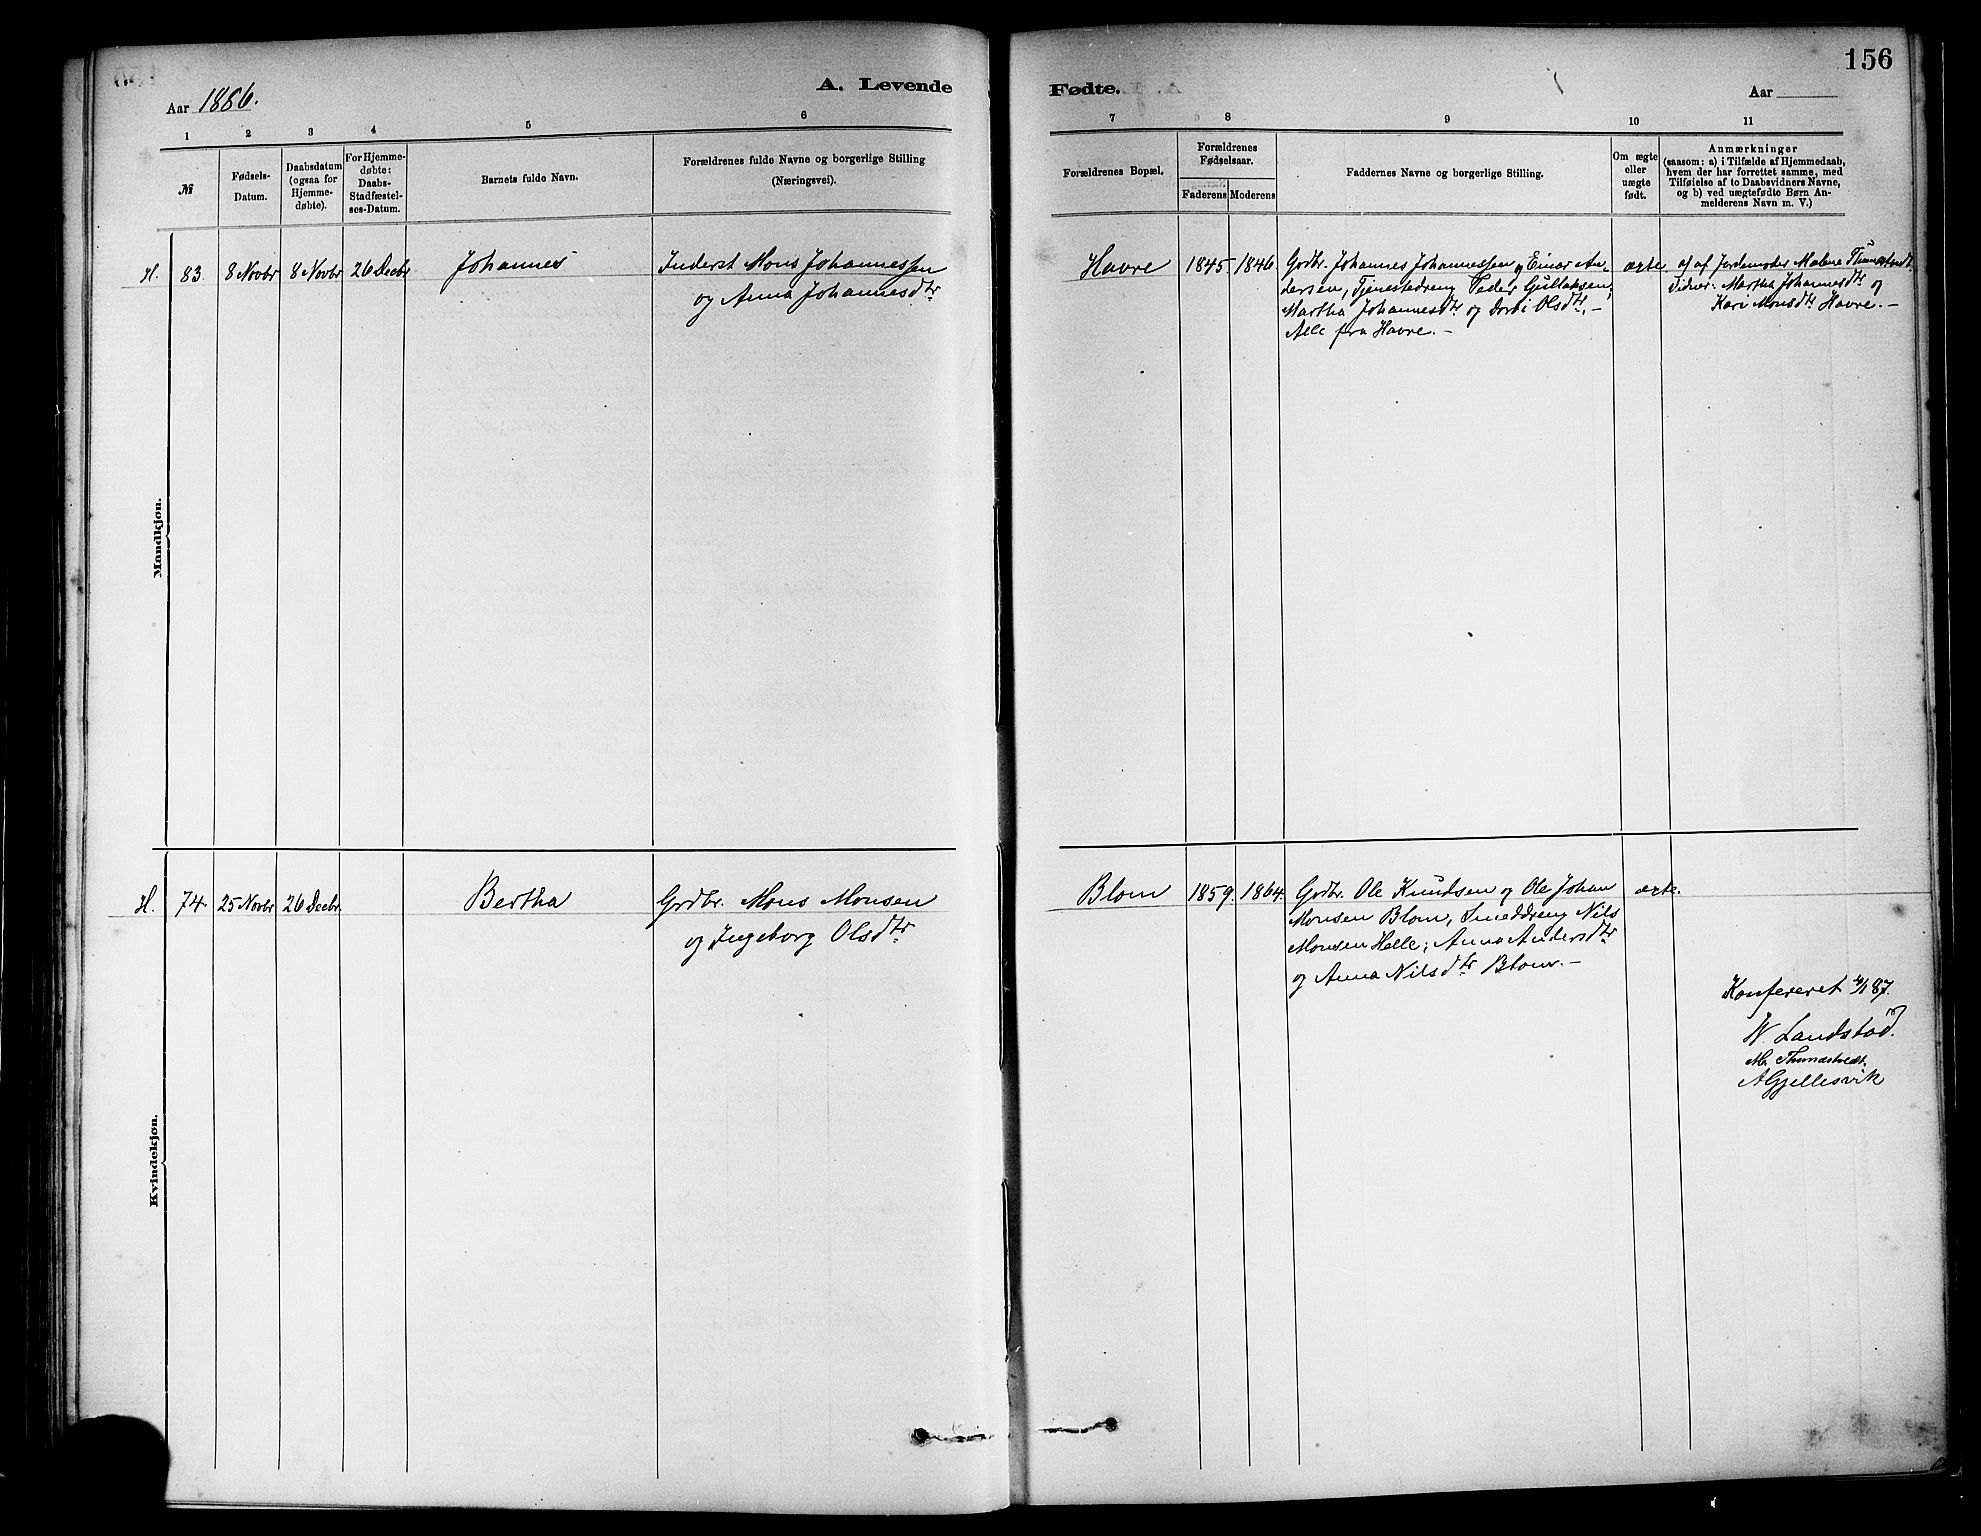 156
Aar 1886.
A. Levende
Fødte.
Aar
1 2 3 4 5 6
7 8 9 10 11
№
Fødsels-
Datum.
Daabsdatum
(ogsaa for
Hjemme-
døbte).
For Hjemme-
døbte:
Daabs-
Stadfæstel-
ses-Datum.
Barnets fulde Navn.
Forældrenes fulde Navne og borgerlige Stilling
(Næringsvei).
Forældrenes Bopæl.
Forældrenes
Fødselsaar.
Faderens Moderens
Faddernes Navne og borgerlige Stilling.
Om ægte
eller
uægte
født.
Anmærkninger
(saasom: a) i Tilfælde af Hjemmedaab,
hvem der har forrettet samme, med
Tilføielse af to Daabsvidners Navne,
og b) ved uægtefødte Børn An-
melderens Navn m. V.)
Mandkjøn.
H. 83. 8 Novbr 8 Novbr 26 Decbr Johannes
Inderst Mons Johannessen
og Anna Johannesdtr
Havre 1845 1846
Grdbr. Johannes Johannessen og Einar An-
dersen, Tjenestedreng Peder Gullaksen,
Martha Johannesdtr og Dorthi Olsdtr. —
Alle fra Havre. —
ægte
a) af Jordemoder Malene Thunestvedt
Vidner: Martha Johannesdtr og
Kari Monsdtr Havre. —
Kvindekjøn.
H. 74 25 Novbr 26 Decbr. Bertha
Grdbr. Mons Monsen
og Ingeborg Olsdtr
Blom 1859. 1864.
Grdbr. Ole Knudsen og Ole Johan
Monsen Blom, Smeddreng Nils
Monsen Helle; Anna Andersdtr
og Anna Nilsdtr Blom. —
ægte.
Konfereret 4/1 87.
W. Landstad.
M. Thunestvedt.
A Gjellesvik